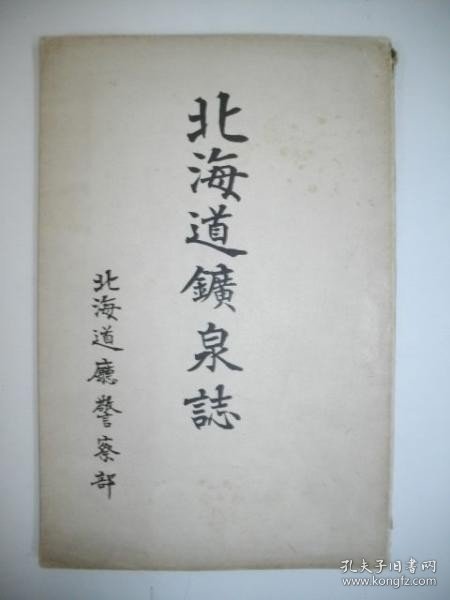 北海道鑛泉誌
北海道廳警察部
孔夫子旧书网
www.kongfz.com